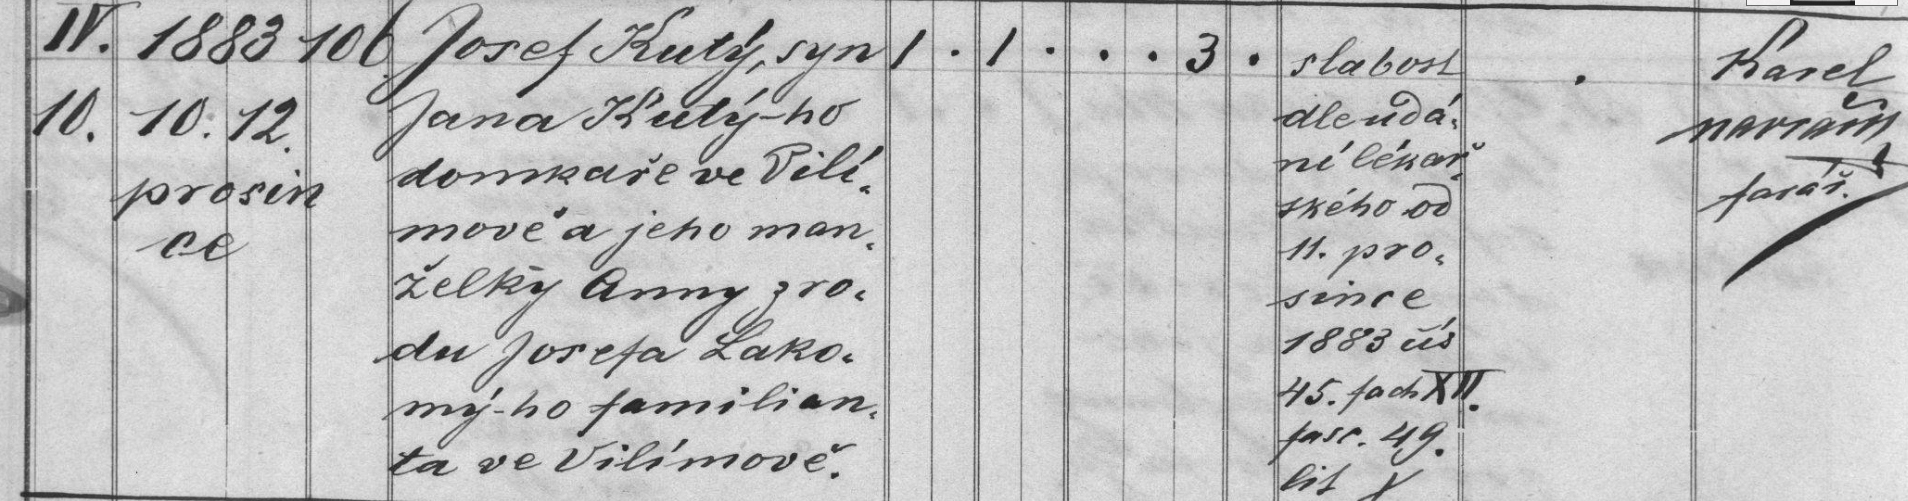 IV. 1883 106 Josef Kutý, syn 1 . 1 . . . 3 . slabost . Karel
10. 10. 12. Jana Kutý-ho dle udá-
prosin domkaře ve Vilí- ní lékař- farář.
ce mově a jeho man- ského od
želky Anny z ro- 11. pro-
du Josefa Lako- since
mý-ho familian- 1883 čís
ta ve Vilímově. 45. fach XII.
fasc. 49.
lit